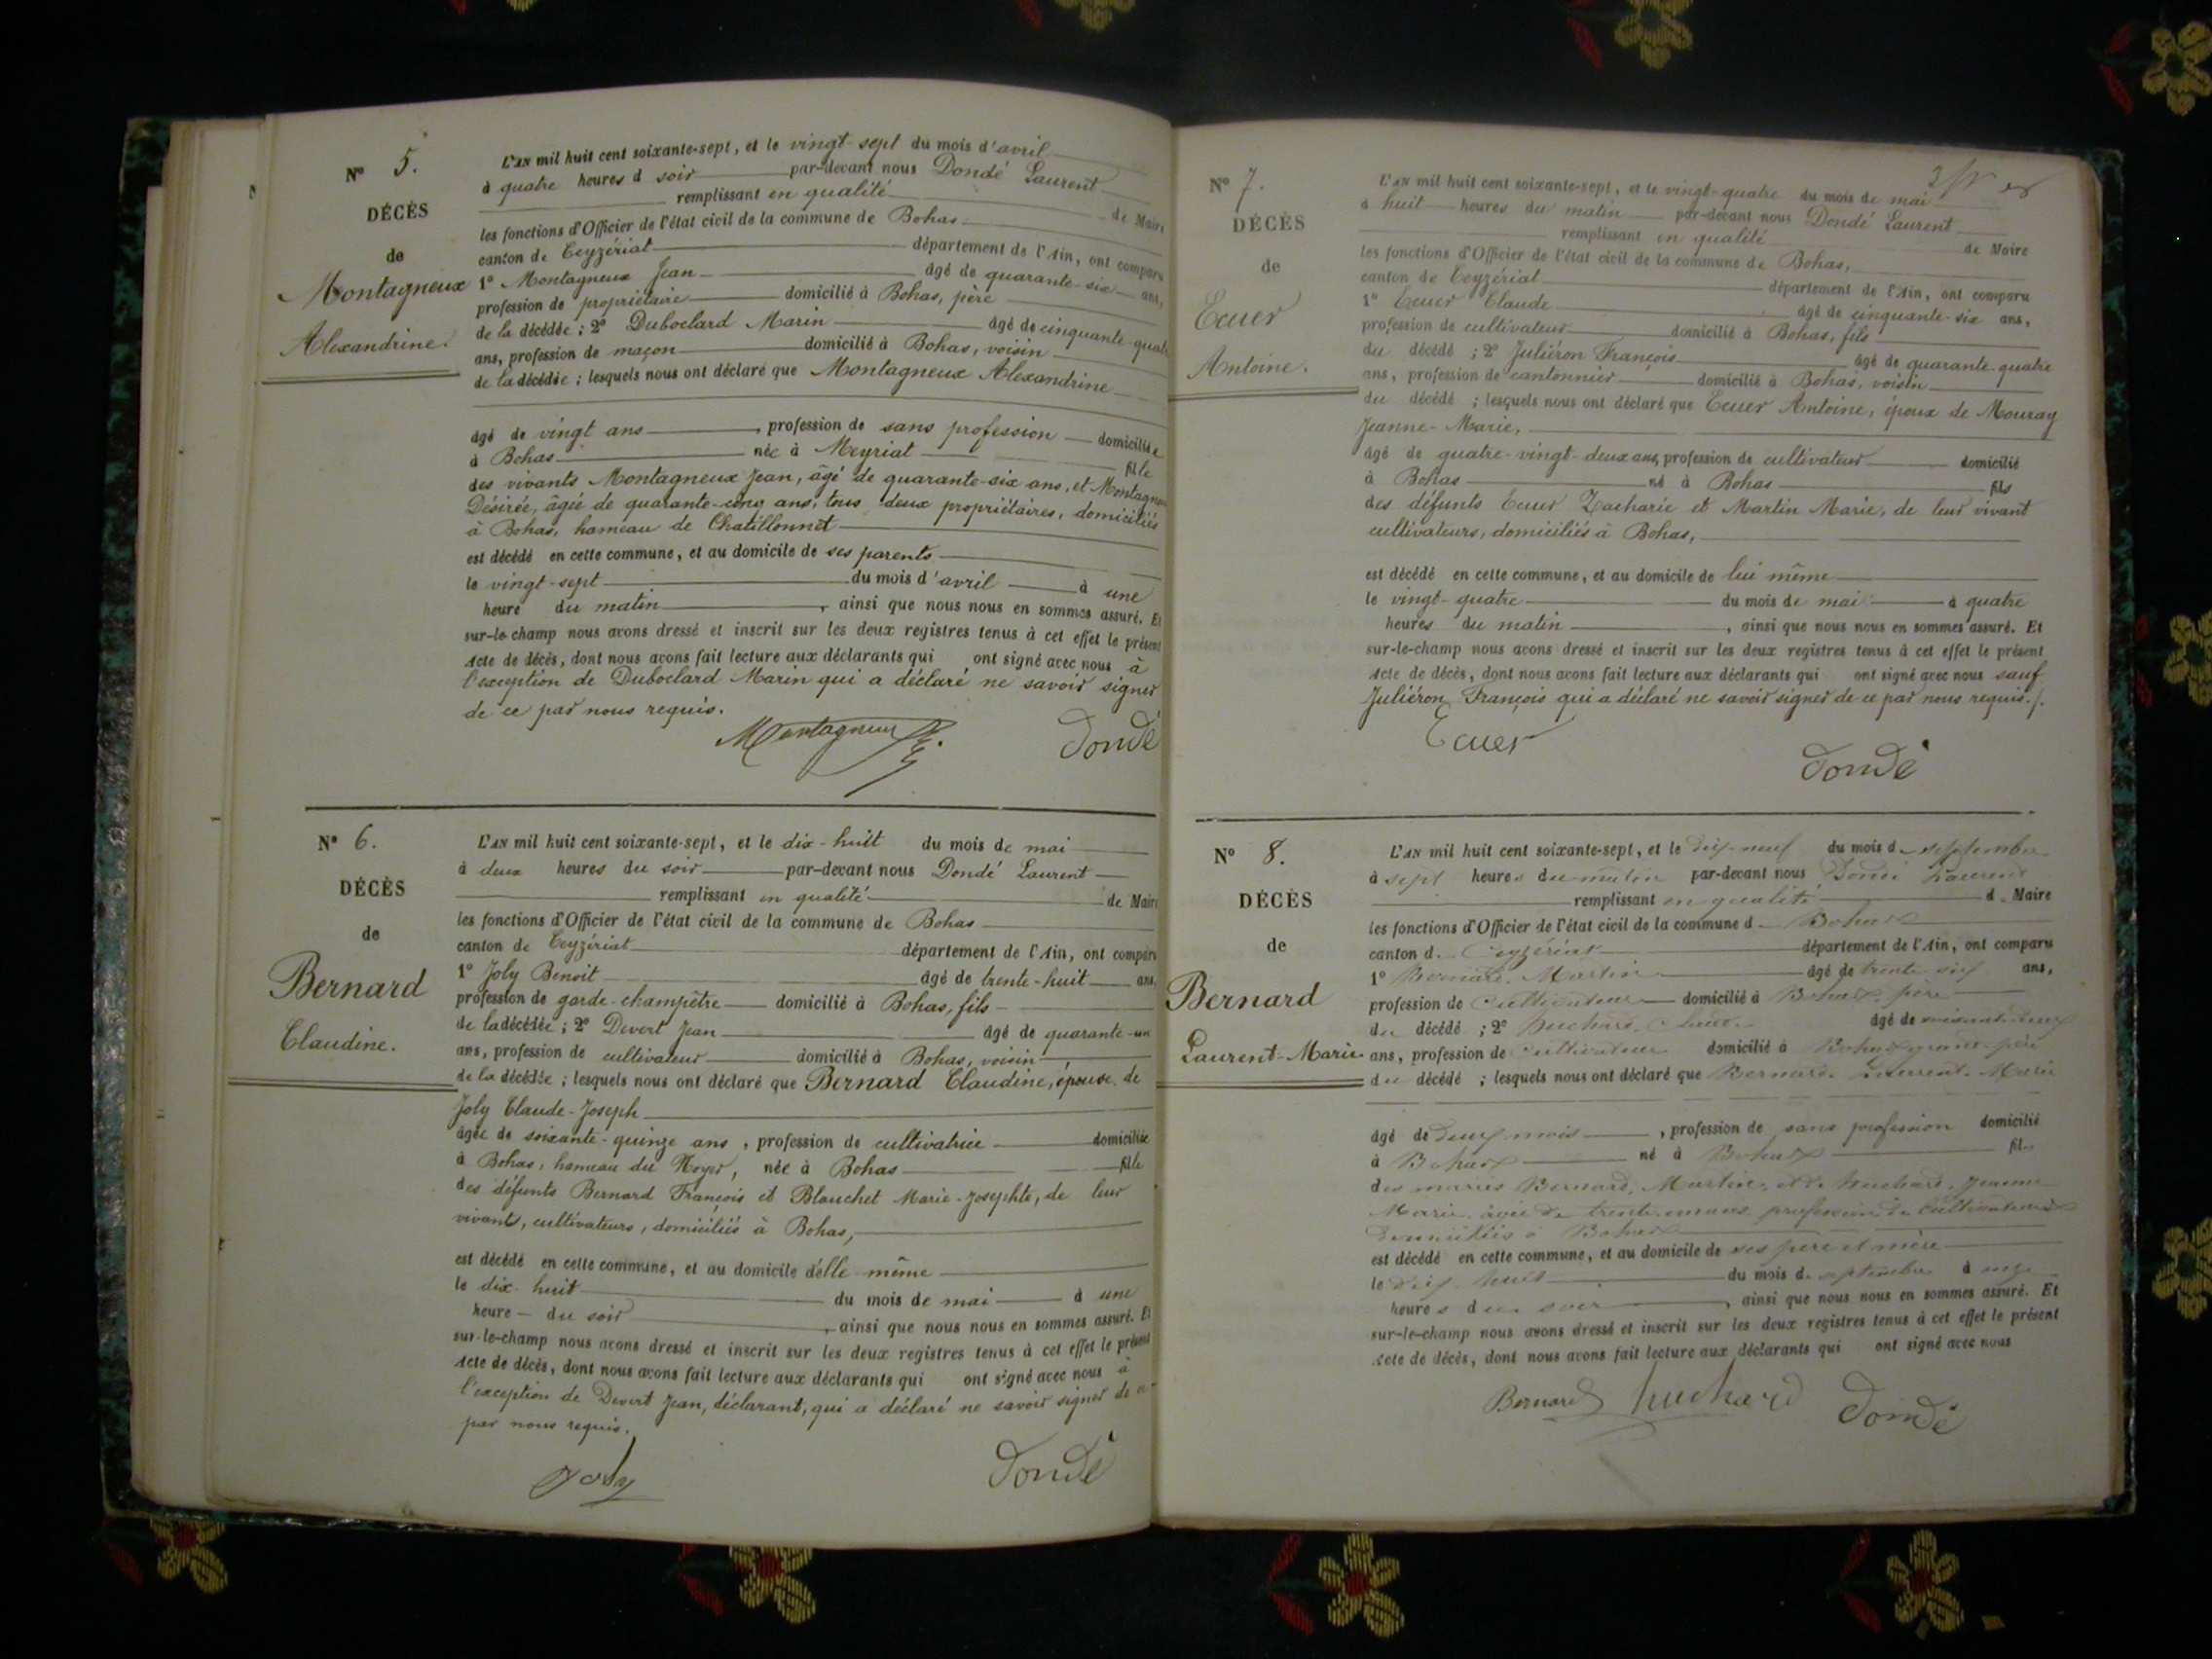 Nº 5.
DÉCÈS
de
Montagneux
Alexandrine.
L'AN mil huit cent soixante-sept, et le vingt-sept du mois d'avril
à quatre heures d soir par-devant nous Dondé Laurent
remplissant en qualité de Maire
les fonctions d'Officier de l'état civil de la commune de Bohas
canton de Ceyzériat département de l'Ain, ont comparu
1º Montagneux Jean âgé de quarante-six ans,
profession de propriétaire domicilié à Bohas, père
de la décédée ; 2º Duboclard Marin âgé de cinquante-quatre
ans, profession de maçon domicilié à Bohas, voisin
de la décédée ; lesquels nous ont déclaré que Montagneux Alexandrine
âgé de vingt ans, profession de sans profession domiciliée
à Bohas née à Meyriat fille
des vivants Montagneux Jean, âgé de quarante-six ans, et Montagneux
Désirée, âgée de quarante-cinq ans, tous deux propriétaires, domiciliés
à Bohas, hameau de Chatillonnet
est décédé en cette commune, et au domicile de ses parents
le vingt-sept du mois d'avril à une
heure du matin, ainsi que nous nous en sommes assuré. Et
sur-le-champ nous avons dressé et inscrit sur les deux registres tenus à cet effet le présent
acte de décès, dont nous avons fait lecture aux déclarants qui ont signé avec nous à
l'exception de Duboclard Marin qui a déclaré ne savoir signer
de ce par nous requis.
Montagneux Dondé
Nº 6.
DÉCÈS
de
Bernard
Claudine.
L'AN mil huit cent soixante-sept, et le dix-huit du mois de mai
à deux heures du soir par-devant nous Dondé Laurent
remplissant en qualité de Maire
les fonctions d'Officier de l'état civil de la commune de Bohas
canton de Ceyzériat département de l'Ain, ont comparu
1º Joly Benoit âgé de trente-huit ans
profession de garde-champêtre domicilié à Bohas, fils
de la décédée ; 2º Devert Jean âgé de quarante-un
ans, profession de cultivateur domicilié à Bohas, voisin
de la décédée ; lesquels nous ont déclaré que Bernard Claudine, épouse de
Joly Claude-Joseph
âgée de soixante-quinze ans, profession de cultivatrice domiciliée
à Bohas, hameau du Noyer, née à Bohas fille
des défunts Bernard François et Blanchet Marie-Josephte, de leur
vivant, cultivateurs, domiciliés à Bohas,
est décédé en cette commune, et au domicile d'elle même
le dix-huit du mois de mai à une
heure du soir, ainsi que nous nous en sommes assuré. Et
sur-le-champ nous avons dressé et inscrit sur les deux registres tenus à cet effet le présent
acte de décès, dont nous avons fait lecture aux déclarants qui ont signé avec nous à
l'exception de Devert Jean, déclarant, qui a déclaré ne savoir signer de ce
par nous requis.
Joly Dondé
Nº 7.
DÉCÈS
de
Ecuer
Antoine.
L'AN mil huit cent soixante-sept, et le vingt-quatre du mois de mai
à huit heures du matin par-devant nous Dondé Laurent
remplissant en qualité de Maire
les fonctions d'Officier de l'état civil de la commune de Bohas,
canton de Ceyzériat département de l'Ain, ont comparu
1º Ecuer Claude âgé de cinquante-six ans,
profession de cultivateur domicilié à Bohas, fils
du décédé ; 2º Juliéron François âgé de quarante-quatre
ans, profession de cantonnier domicilié à Bohas, voisin
du décédé ; lesquels nous ont déclaré que Ecuer Antoine, époux de Mouray
Jeanne-Marie,
âgé de quatre-vingt-deux ans, profession de cultivateur domicilié
à Bohas né à Bohas fils
des défunts Ecuer Zacharie et Martin Marie, de leur vivant
cultivateurs, domiciliés à Bohas,
est décédé en cette commune, et au domicile de lui même
le vingt-quatre du mois de mai à quatre
heures du matin, ainsi que nous nous en sommes assuré. Et
sur-le-champ nous avons dressé et inscrit sur les deux registres tenus à cet effet le présent
acte de décès, dont nous avons fait lecture aux déclarants qui ont signé avec nous sauf
Juliéron François qui a déclaré ne savoir signer de ce par nous requis./.
Ecuer
Dondé
Nº 8.
DÉCÈS
de
Bernard
Laurent-Marie
L'AN mil huit cent soixante-sept, et le dix-neuf du mois de septembre
à sept heures du matin par-devant nous Dondé Laurent
remplissant en qualité d Maire
les fonctions d'Officier de l'état civil de la commune d Bohas
canton d Ceyzériat département de l'Ain, ont comparu
1º Bernard Martin âgé de trente ans,
profession de cultivateur domicilié à Bohas père
du décédé ; 2º Huchard Claude âgé de
ans, profession de cultivateur domicilié à Bohas grand-père
du décédé ; lesquels nous ont déclaré que Bernard Laurent-Marie
âgé de deux mois, profession de sans profession domicilié
à Bohas né à Bohas fils
des mariés Bernard, Martin, et de Huchard, Jeanne
Marie, âgée de trente profession de cultivateurs
domiciliés à Bohas
est décédé en cette commune, et au domicile de ses père et mère
le dix-huit du mois de septembre à onze
heures du soir, ainsi que nous nous en sommes assuré. Et
sur-le-champ nous avons dressé et inscrit sur les deux registres tenus à cet effet le présent
acte de décès, dont nous avons fait lecture aux déclarants qui ont signé avec nous
Bernard huchard Dondé